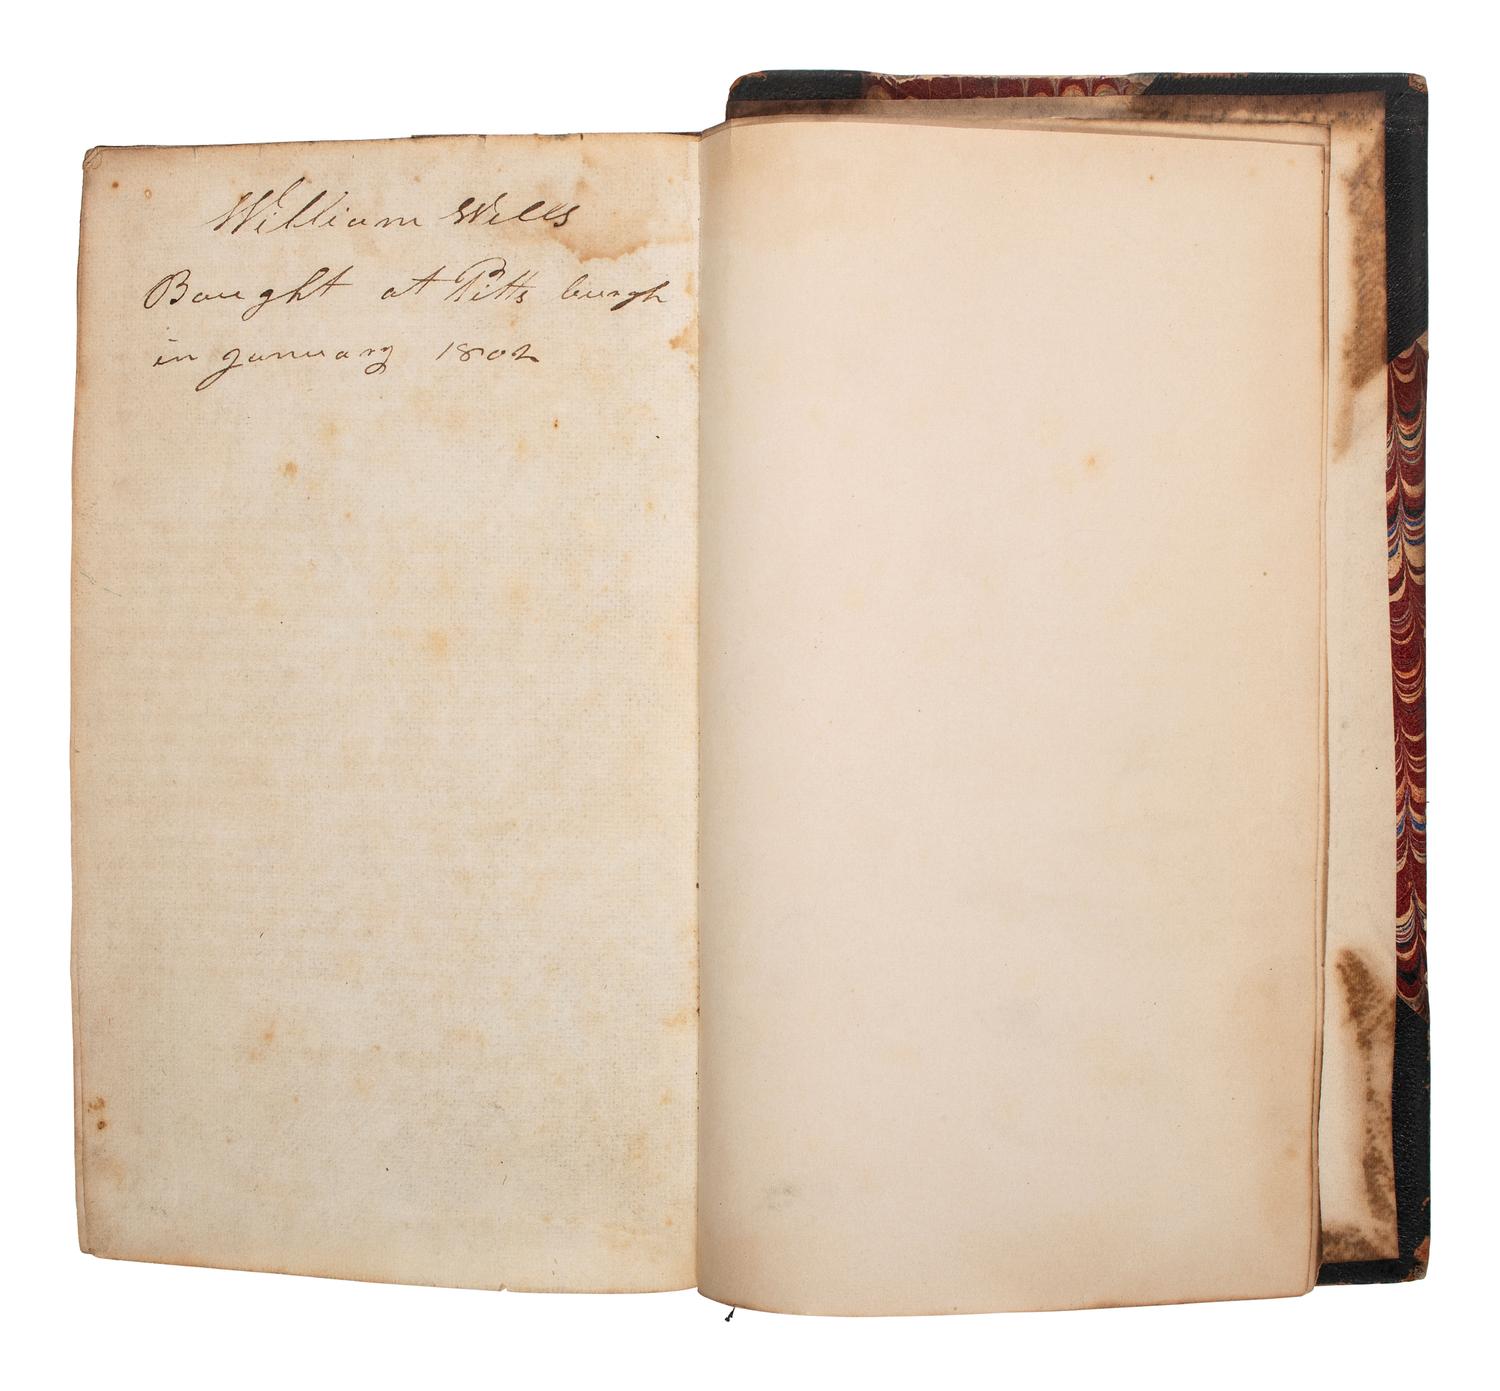 William Wells
Bought at Pitts burgh
in january 1802